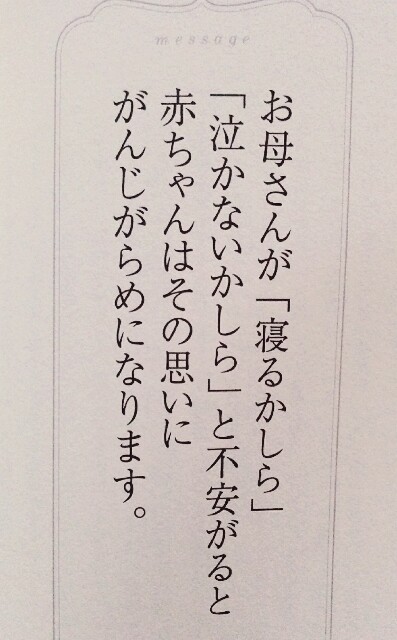 message
お母さんが「寝るかしら」
「泣かないかしら」と不安がると
赤ちゃんはその思いに
がんじがらめになります。